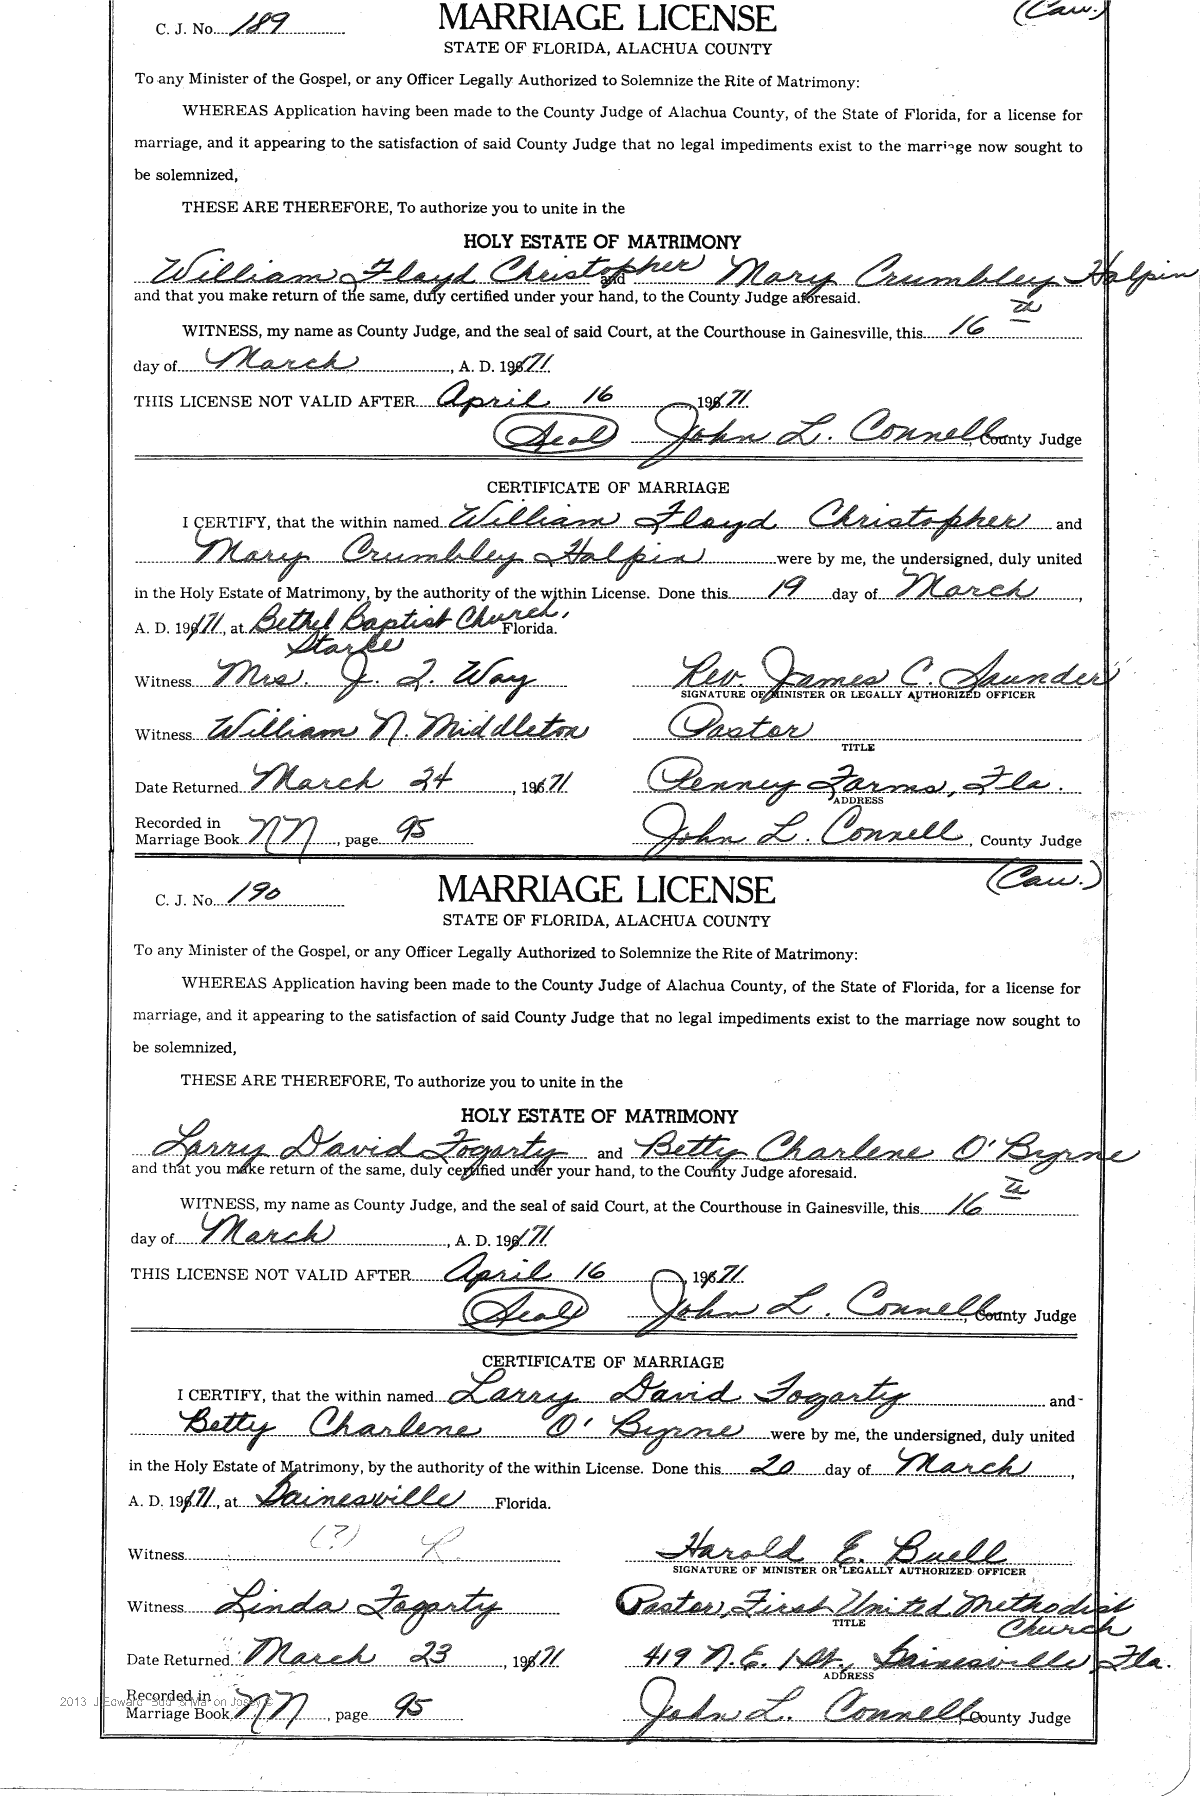 (Cau.)
C. J. No. 189
MARRIAGE LICENSE
STATE OF FLORIDA, ALACHUA COUNTY
To any Minister of the Gospel, or any Officer Legally Authorized to Solemnize the Rite of Matrimony:
WHEREAS Application having been made to the County Judge of Alachua County, of the State of Florida, for a license for
marriage, and it appearing to the satisfaction of said County Judge that no legal impediments exist to the marriage now sought to
be solemnized,
THESE ARE THEREFORE, To authorize you to unite in the
HOLY ESTATE OF MATRIMONY
William Floyd Christopher and Mary Crumbley Halpin
and that you make return of the same, duly certified under your hand, to the County Judge aforesaid.
WITNESS, my name as County Judge, and the seal of said Court, at the Courthouse in Gainesville, this 16th
day of March, A. D. 1971.
THIS LICENSE NOT VALID AFTER April 16, 1971.
(Seal) John L. Connell, County Judge
CERTIFICATE OF MARRIAGE
I CERTIFY, that the within named William Floyd Christopher and
Mary Crumbley Halpin were by me, the undersigned, duly united
in the Holy Estate of Matrimony, by the authority of the within License. Done this 19 day of March,
A. D. 1971, at Bethel Baptist Church, Florida.
Starke
Witness Mrs. J. L. Way Rev. James C. Saunders
SIGNATURE OF MINISTER OR LEGALLY AUTHORIZED OFFICER
Witness William N. Middleton Pastor
TITLE
Date Returned March 24, 1971. Penney Farms, Fla.
ADDRESS
Recorded in
Marriage Book NN, page 95 John L. Connell, County Judge
(Cau.)
C. J. No. 190
MARRIAGE LICENSE
STATE OF FLORIDA, ALACHUA COUNTY
To any Minister of the Gospel, or any Officer Legally Authorized to Solemnize the Rite of Matrimony:
WHEREAS Application having been made to the County Judge of Alachua County, of the State of Florida, for a license for
marriage, and it appearing to the satisfaction of said County Judge that no legal impediments exist to the marriage now sought to
be solemnized,
THESE ARE THEREFORE, To authorize you to unite in the
HOLY ESTATE OF MATRIMONY
Larry David Fogarty and Betty Charlene O'Byrne
and that you make return of the same, duly certified under your hand, to the County Judge aforesaid.
WITNESS, my name as County Judge, and the seal of said Court, at the Courthouse in Gainesville, this 16th
day of March, A. D. 1971
THIS LICENSE NOT VALID AFTER April 16, 1971.
(Seal) John L. Connell, County Judge
CERTIFICATE OF MARRIAGE
I CERTIFY, that the within named Larry David Fogarty and
Betty Charlene O'Byrne were by me, the undersigned, duly united
in the Holy Estate of Matrimony, by the authority of the within License. Done this 20 day of March,
A. D. 1971, at Gainesville Florida.
Witness (?) R. Harold E. Buell
SIGNATURE OF MINISTER OR LEGALLY AUTHORIZED OFFICER
Witness Linda Fogarty Pastor, First United Methodist
TITLE Church
Date Returned March 23, 1971 419 N.E. 1 St., Gainesville, Fla.
ADDRESS
Recorded in
Marriage Book NN, page 95 John L. Connell, County Judge